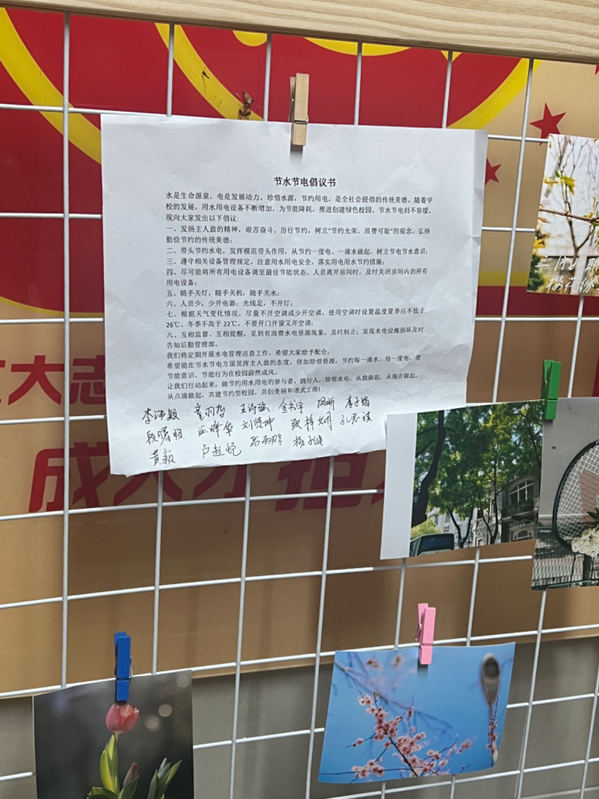 节水节电倡议书
水是生命源泉，电是发展动力。珍惜水源，节约用电，是全社会提倡的传统美德。随着学
校的发展，用水用电设备不断增加，为节能降耗，推进创建绿色校园，节水节电刻不容缓，
现向大家发出以下倡议：
一、发扬主人翁的精神，艰苦奋斗，厉行节约，树立“节约光荣，浪费可耻”的观念，弘扬
勤俭节约的传统美德；
二、带头节约水电，发挥模范带头作用，从节约一度电、一滴水做起，树立节电节水意识；
三、遵守相关设备管理规定，注意用水用电安全，落实用电用水节约措施；
四、尽可能将所有用电设备调至最佳节能状态，人员离开房间时，及时关闭房间内的所有
用电设备；
五、随手关灯，随手关机，随手关水；
六、人员少，少开电器；光线足，不开灯；
七、根据天气变化情况，尽量不开空调或少开空调，使用空调时设置温度夏季应不低于
26℃，冬季不高于22℃，不要开门开窗又开空调；
八、互相监督、互相提醒，见到有浪费水电资源现象，及时制止；发现水电设施损坏及时
告知后勤管理部。
我们将定期开展水电管理巡查工作，希望大家给予配合。
希望能在节水节电方面发挥主人翁的态度，倍加珍惜资源，节约每一滴水，每一度电，使
节能意识、节能行为在校园蔚然成风。
让我们行动起来，做节约用水用电的参与者，践行人，珍惜水电，从我做起，从现在做起，
从点滴做起，共建节约型校园，共创美丽和谐武工商！
大志
成大才担